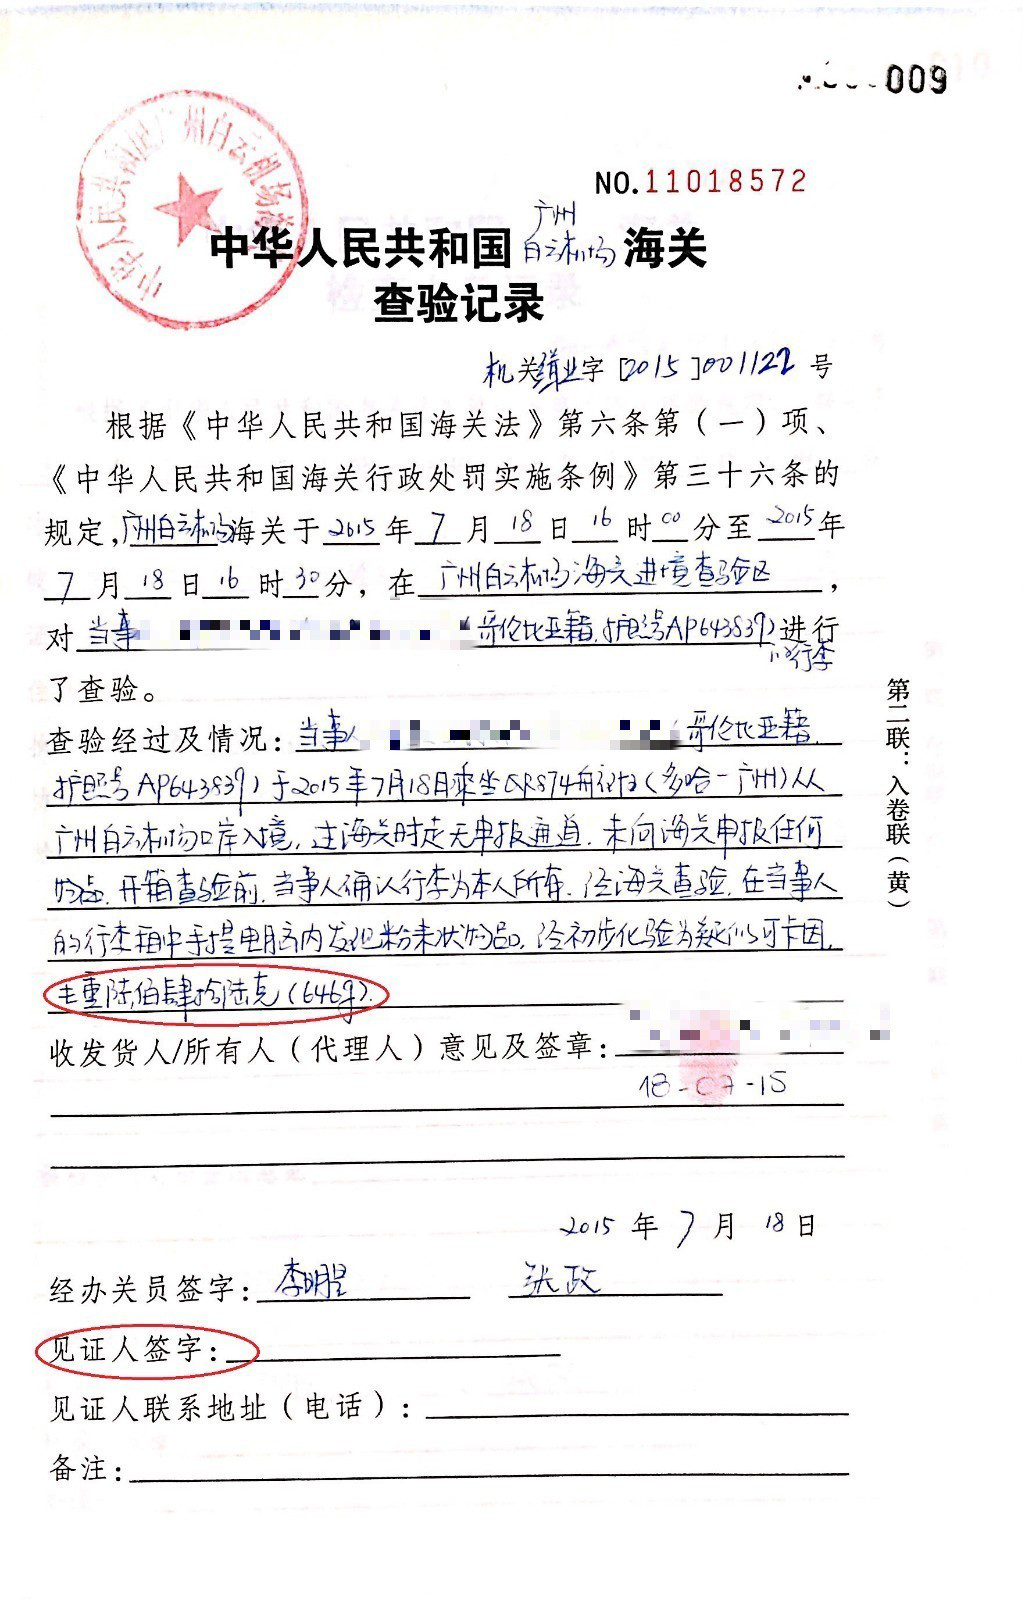 009
NO.11018572
中华人民共和国广州白云机场海关
中华人民共和国 广州白云机场 海关
查验记录
机关缉业字[2015]001122号
根据《中华人民共和国海关法》第六条第（一）项、
《中华人民共和国海关行政处罚实施条例》第三十六条的
规定，广州白云机场海关于2015年7月18日16时00分至2015年
7月18日16时30分，在广州白云机场海关进境查验区，
对当事（哥伦比亚籍，护照号AP643839）进行
的行李
了查验。
查验经过及情况：当事人（哥伦比亚籍，
护照号AP643839）于2015年7月18日乘坐QR874航班（多哈-广州）从
广州白云机场口岸入境，过海关时走无申报通道，未向海关申报任何
物品，开箱查验前，当事人确认行李为本人所有，经海关查验，在当事人
的行李箱中手提电脑内发现粉末状物品，经初步化验为疑似可卡因，
毛重陆佰肆拾陆克（646g）。
收发货人/所有人（代理人）意见及签章：
18-07-15
2015年7月18日
经办关员签字： 张政
见证人签字：
见证人联系地址（电话）：
备注：
第二联：入卷联（黄）